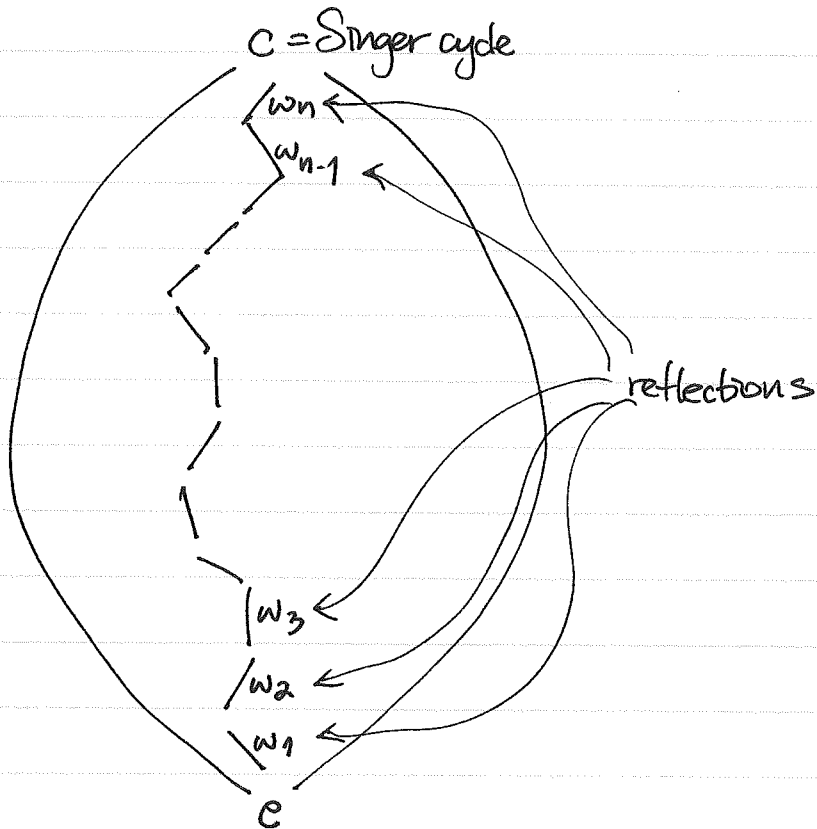 c = Singer cycle
wn
wn-1
reflections
w3
w2
w1
e